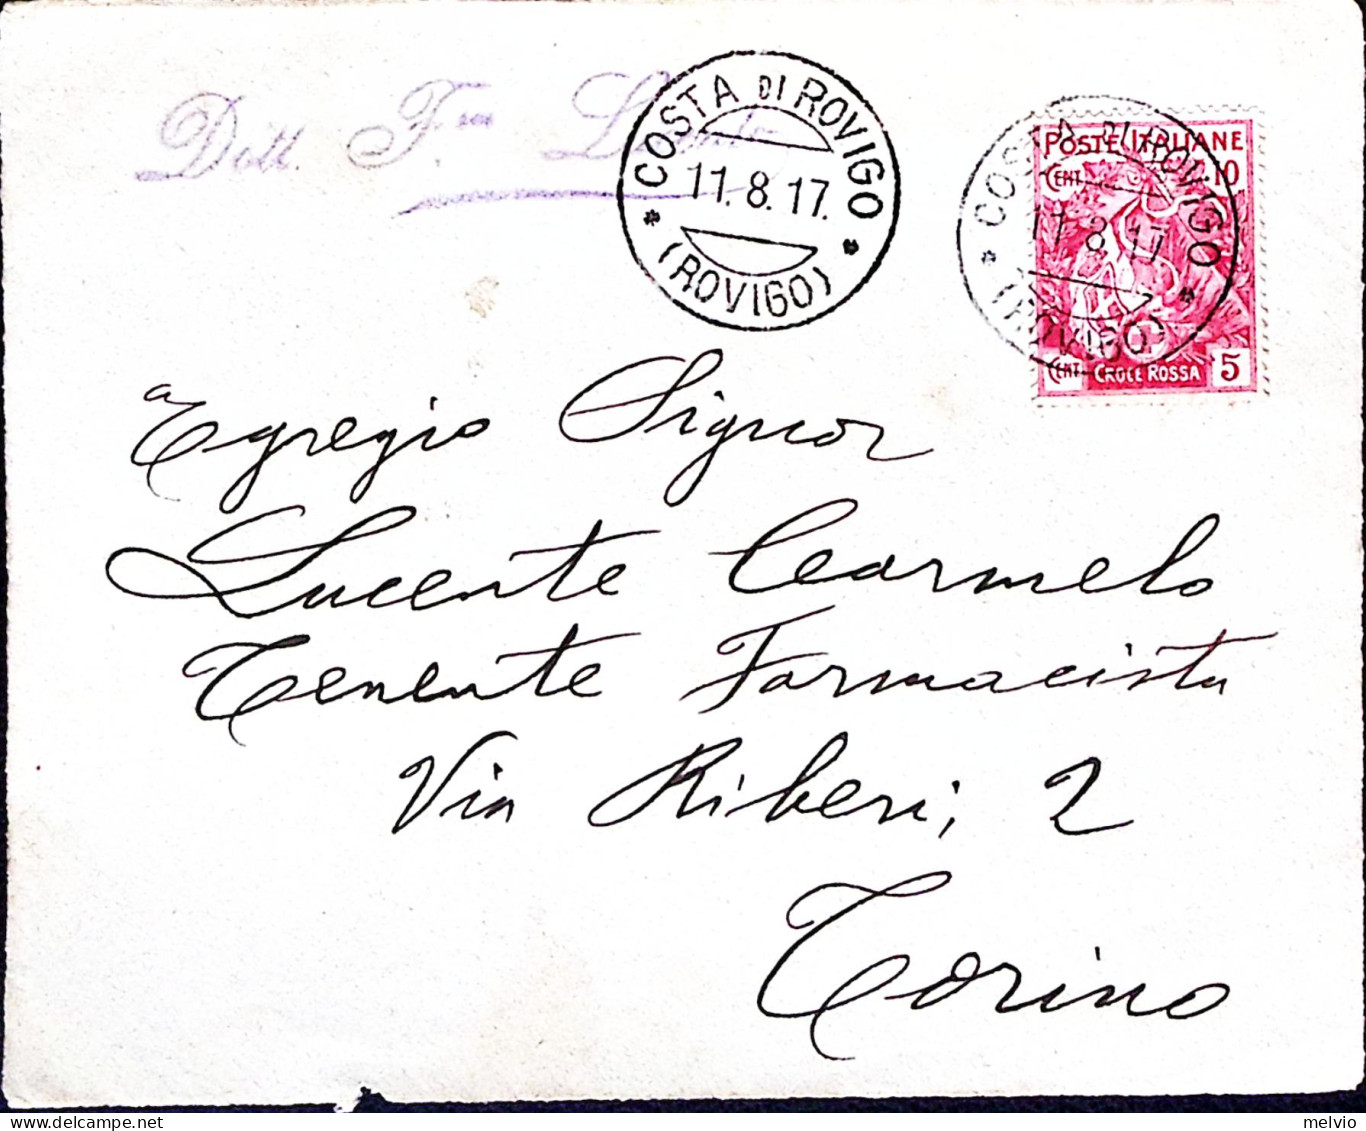 Dott. F.
COSTA DI ROVIGO
11.8.17.
(ROVIGO)
COSTA DI ROVIGO
11 8 17
(ROVIGO)
POSTE ITALIANE
CENT. 10
CENT. CROCE ROSSA 5
Egregio Signor
Lucente Carmelo
Tenente Farmacista
Via Riberi, 2
Torino
melvio